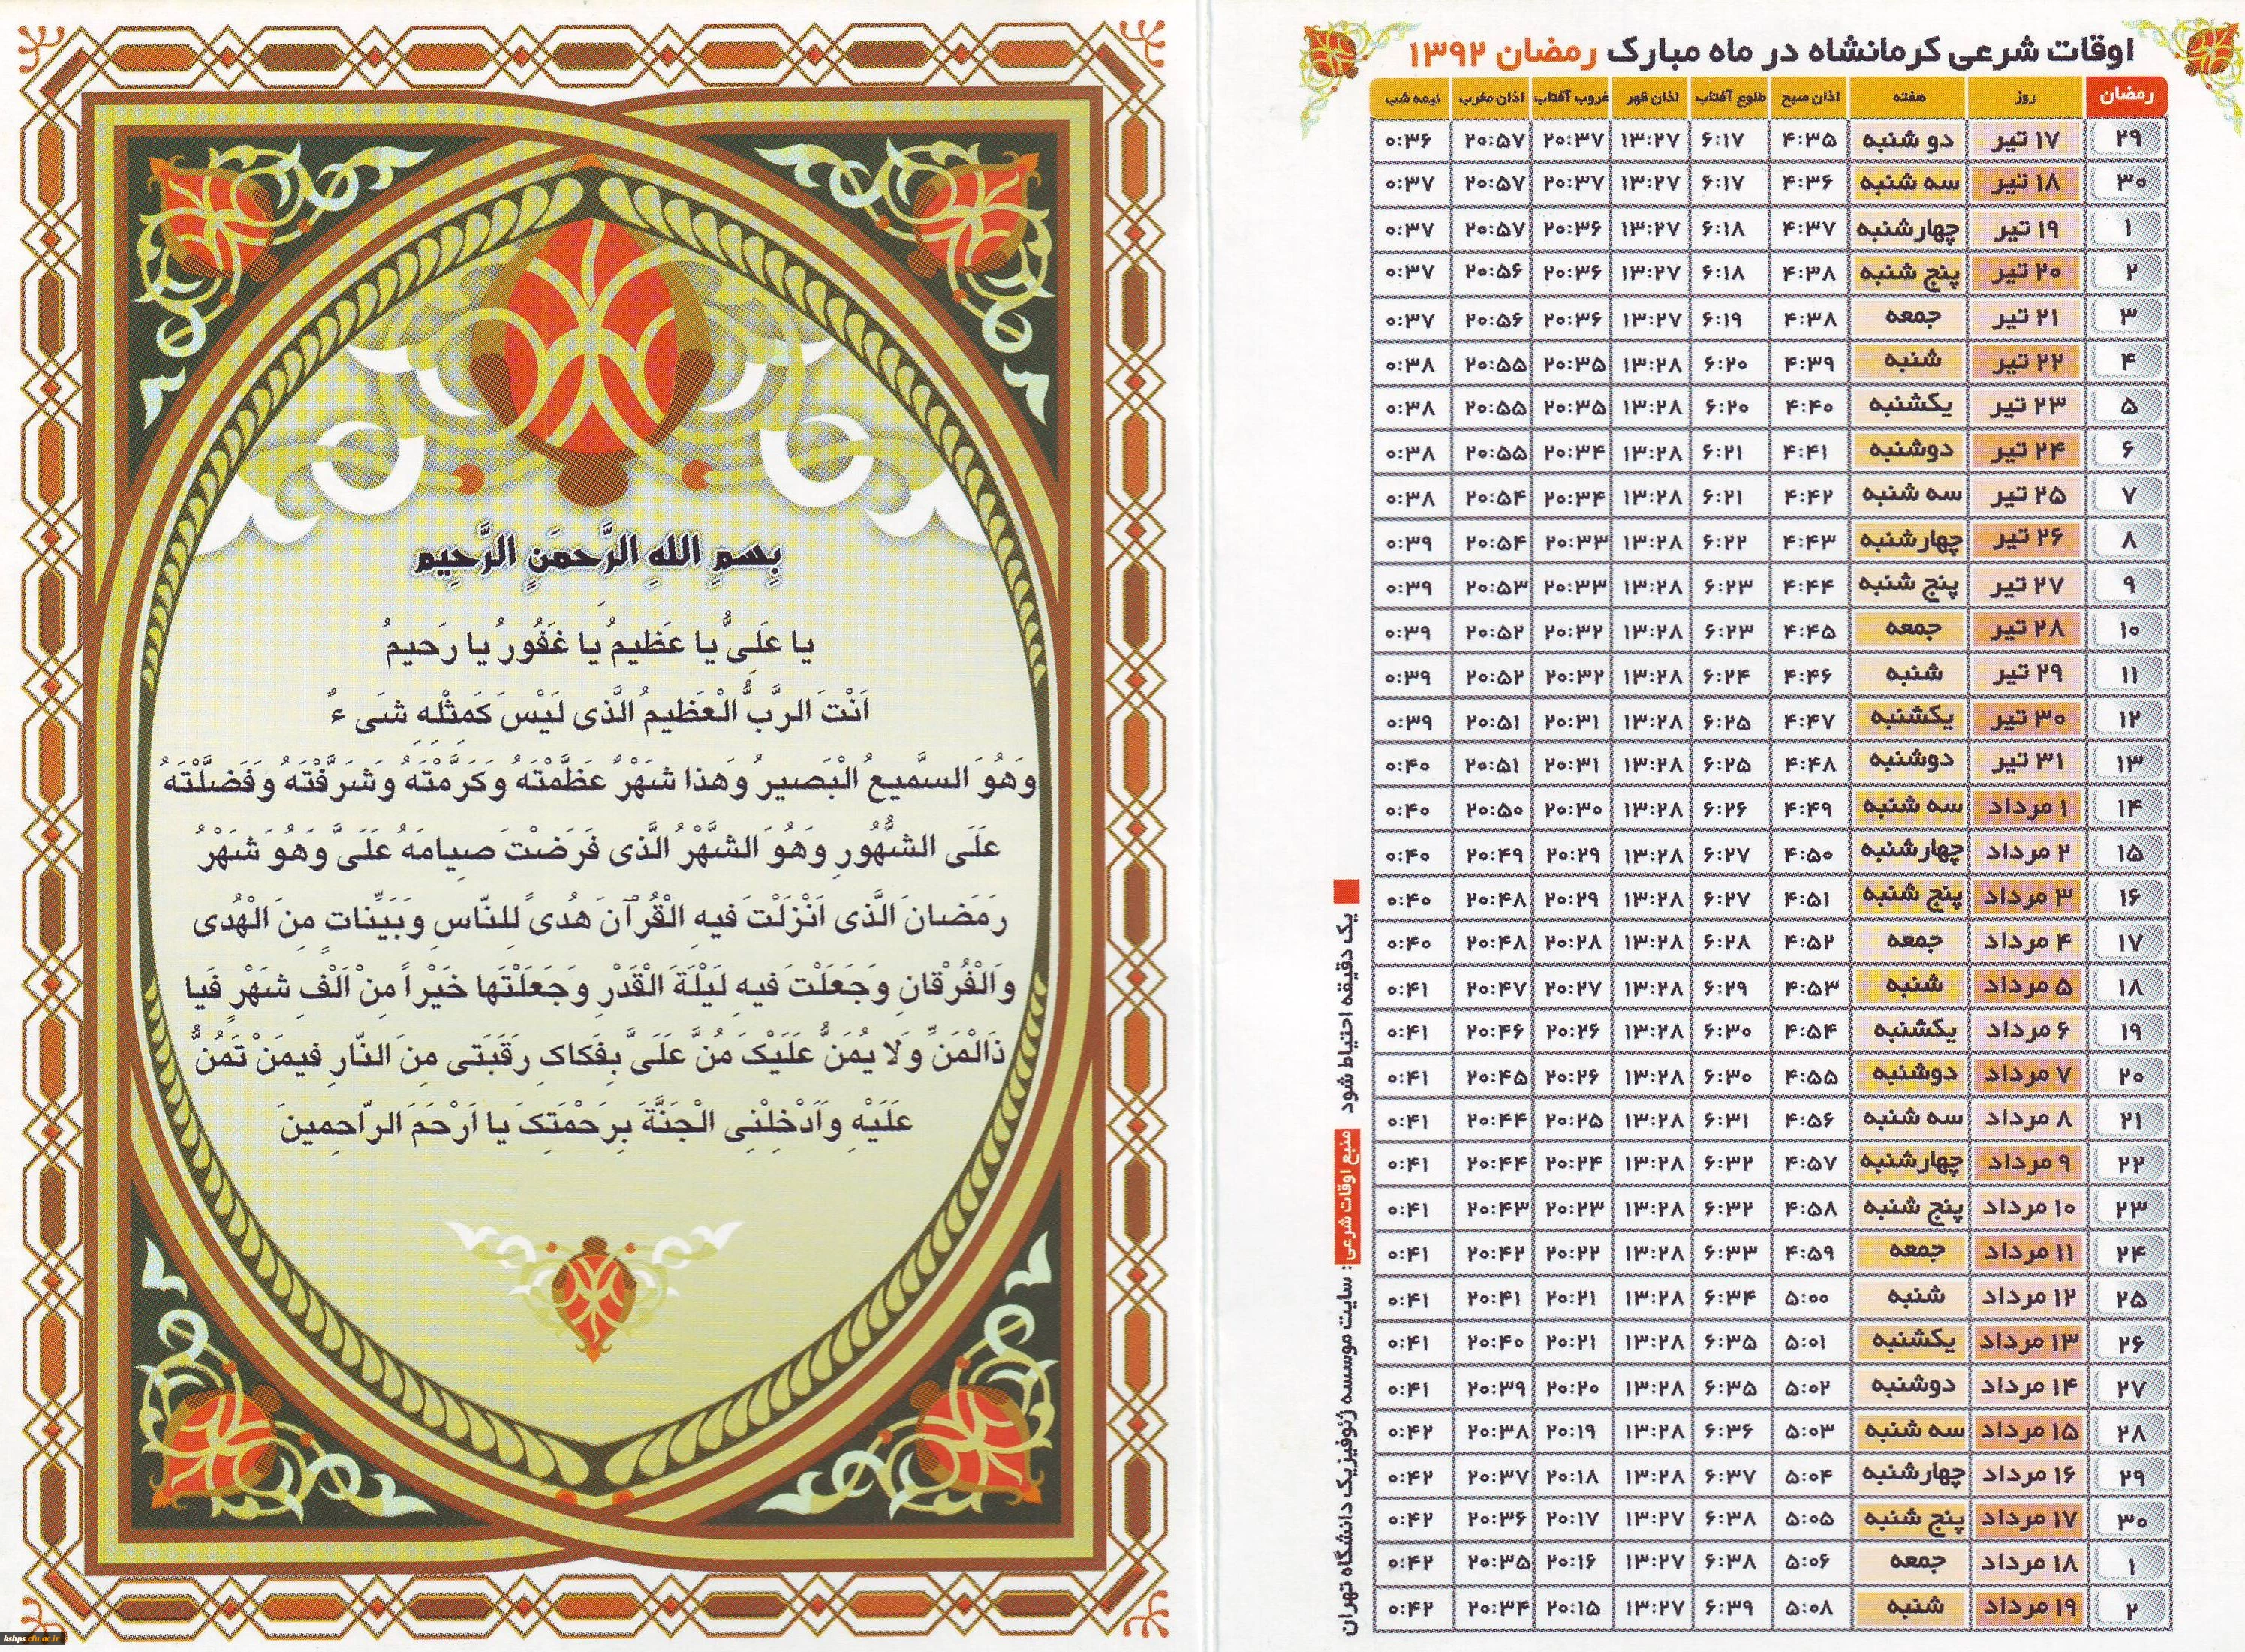 اوقات شرعی کرمانشاه در ماه مبارک رمضان ۱۳۹۲
رمضان روز هفته اذان صبح طلوع آفتاب اذان ظهر غروب آفتاب اذان مغرب نیمه شب
۲۹ ۱۷ تیر دو شنبه ۴:۳۵ ۶:۱۷ ۱۳:۲۷ ۲۰:۳۷ ۲۰:۵۷ ۰:۳۶
۳۰ ۱۸ تیر سه شنبه ۴:۳۶ ۶:۱۷ ۱۳:۲۷ ۲۰:۳۷ ۲۰:۵۷ ۰:۳۷
۱ ۱۹ تیر چهارشنبه ۴:۳۷ ۶:۱۸ ۱۳:۲۷ ۲۰:۳۶ ۲۰:۵۷ ۰:۳۷
۲ ۲۰ تیر پنج شنبه ۴:۳۸ ۶:۱۸ ۱۳:۲۷ ۲۰:۳۶ ۲۰:۵۶ ۰:۳۷
۳ ۲۱ تیر جمعه ۴:۳۸ ۶:۱۹ ۱۳:۲۷ ۲۰:۳۶ ۲۰:۵۶ ۰:۳۷
۴ ۲۲ تیر شنبه ۴:۳۹ ۶:۲۰ ۱۳:۲۸ ۲۰:۳۵ ۲۰:۵۵ ۰:۳۸
۵ ۲۳ تیر یکشنبه ۴:۴۰ ۶:۲۰ ۱۳:۲۸ ۲۰:۳۵ ۲۰:۵۵ ۰:۳۸
۶ ۲۴ تیر دوشنبه ۴:۴۱ ۶:۲۱ ۱۳:۲۸ ۲۰:۳۴ ۲۰:۵۵ ۰:۳۸
۷ ۲۵ تیر سه شنبه ۴:۴۲ ۶:۲۱ ۱۳:۲۸ ۲۰:۳۴ ۲۰:۵۴ ۰:۳۸
۸ ۲۶ تیر چهارشنبه ۴:۴۳ ۶:۲۲ ۱۳:۲۸ ۲۰:۳۳ ۲۰:۵۴ ۰:۳۹
۹ ۲۷ تیر پنج شنبه ۴:۴۴ ۶:۲۳ ۱۳:۲۸ ۲۰:۳۳ ۲۰:۵۳ ۰:۳۹
۱۰ ۲۸ تیر جمعه ۴:۴۵ ۶:۲۳ ۱۳:۲۸ ۲۰:۳۲ ۲۰:۵۲ ۰:۳۹
۱۱ ۲۹ تیر شنبه ۴:۴۶ ۶:۲۴ ۱۳:۲۸ ۲۰:۳۲ ۲۰:۵۲ ۰:۳۹
۱۲ ۳۰ تیر یکشنبه ۴:۴۷ ۶:۲۵ ۱۳:۲۸ ۲۰:۳۱ ۲۰:۵۱ ۰:۳۹
۱۳ ۳۱ تیر دوشنبه ۴:۴۸ ۶:۲۵ ۱۳:۲۸ ۲۰:۳۱ ۲۰:۵۱ ۰:۴۰
۱۴ ۱ مرداد سه شنبه ۴:۴۹ ۶:۲۶ ۱۳:۲۸ ۲۰:۳۰ ۲۰:۵۰ ۰:۴۰
۱۵ ۲ مرداد چهارشنبه ۴:۵۰ ۶:۲۷ ۱۳:۲۸ ۲۰:۲۹ ۲۰:۴۹ ۰:۴۰
۱۶ ۳ مرداد پنج شنبه ۴:۵۱ ۶:۲۷ ۱۳:۲۸ ۲۰:۲۹ ۲۰:۴۸ ۰:۴۰
۱۷ ۴ مرداد جمعه ۴:۵۲ ۶:۲۸ ۱۳:۲۸ ۲۰:۲۸ ۲۰:۴۸ ۰:۴۰
۱۸ ۵ مرداد شنبه ۴:۵۳ ۶:۲۹ ۱۳:۲۸ ۲۰:۲۷ ۲۰:۴۷ ۰:۴۱
۱۹ ۶ مرداد یکشنبه ۴:۵۴ ۶:۳۰ ۱۳:۲۸ ۲۰:۲۶ ۲۰:۴۶ ۰:۴۱
۲۰ ۷ مرداد دوشنبه ۴:۵۵ ۶:۳۰ ۱۳:۲۸ ۲۰:۲۶ ۲۰:۴۵ ۰:۴۱
۲۱ ۸ مرداد سه شنبه ۴:۵۶ ۶:۳۱ ۱۳:۲۸ ۲۰:۲۵ ۲۰:۴۴ ۰:۴۱
۲۲ ۹ مرداد چهارشنبه ۴:۵۷ ۶:۳۲ ۱۳:۲۸ ۲۰:۲۴ ۲۰:۴۴ ۰:۴۱
۲۳ ۱۰ مرداد پنج شنبه ۴:۵۸ ۶:۳۲ ۱۳:۲۸ ۲۰:۲۳ ۲۰:۴۳ ۰:۴۱
۲۴ ۱۱ مرداد جمعه ۴:۵۹ ۶:۳۳ ۱۳:۲۸ ۲۰:۲۲ ۲۰:۴۲ ۰:۴۱
۲۵ ۱۲ مرداد شنبه ۵:۰۰ ۶:۳۴ ۱۳:۲۸ ۲۰:۲۱ ۲۰:۴۱ ۰:۴۱
۲۶ ۱۳ مرداد یکشنبه ۵:۰۱ ۶:۳۵ ۱۳:۲۸ ۲۰:۲۱ ۲۰:۴۰ ۰:۴۱
۲۷ ۱۴ مرداد دوشنبه ۵:۰۲ ۶:۳۵ ۱۳:۲۸ ۲۰:۲۰ ۲۰:۳۹ ۰:۴۱
۲۸ ۱۵ مرداد سه شنبه ۵:۰۳ ۶:۳۶ ۱۳:۲۸ ۲۰:۱۹ ۲۰:۳۸ ۰:۴۲
۲۹ ۱۶ مرداد چهارشنبه ۵:۰۴ ۶:۳۷ ۱۳:۲۸ ۲۰:۱۸ ۲۰:۳۷ ۰:۴۲
۳۰ ۱۷ مرداد پنج شنبه ۵:۰۵ ۶:۳۸ ۱۳:۲۷ ۲۰:۱۷ ۲۰:۳۶ ۰:۴۲
۱ ۱۸ مرداد جمعه ۵:۰۶ ۶:۳۸ ۱۳:۲۷ ۲۰:۱۶ ۲۰:۳۵ ۰:۴۲
۲ ۱۹ مرداد شنبه ۵:۰۸ ۶:۳۹ ۱۳:۲۷ ۲۰:۱۵ ۲۰:۳۴ ۰:۴۲
یک دقیقه احتیاط شود
منبع اوقات شرعی: سایت موسسه ژئوفیزیک دانشگاه تهران
بِسمِ اللهِ الرَّحمَنِ الرَّحِیم
یا عَلِیُّ یا عَظیمُ یا غَفُورُ یا رَحیمُ
اَنْتَ الرَّبُّ الْعَظیمُ الَّذی لَیْسَ کَمِثْلِهِ شَیء
وَهُوَ السَّمیعُ الْبَصیرُ وَهذا شَهْرٌ عَظَّمْتَهُ وَکَرَّمْتَهُ وَشَرَّفْتَهُ وَفَضَّلْتَهُ
عَلَی الشُّهُورِ وَهُوَ الشَّهْرُ الَّذی فَرَضْتَ صِیامَهُ عَلَیَّ وَهُوَ شَهْرُ
رَمَضانَ الَّذی اَنْزَلْتَ فیهِ الْقُرْآنَ هُدیً لِلنّاسِ وَبَیِّناتٍ مِنَ الْهُدی
وَالْفُرْقانِ وَجَعَلْتَ فیهِ لَیْلَةَ الْقَدْرِ وَجَعَلْتَها خَیْراً مِنْ اَلْفِ شَهْرٍ فَیا
ذَالْمَنِّ وَلا یُمَنُّ عَلَیْکَ مُنَّ عَلَیَّ بِفَکاکِ رَقَبَتی مِنَ النّارِ فیمَنْ تَمُنُّ
عَلَیْهِ وَاَدْخِلْنِی الْجَنَّةَ بِرَحْمَتِکَ یا اَرْحَمَ الرّاحِمینَ
kshps.cfu.ac.ir